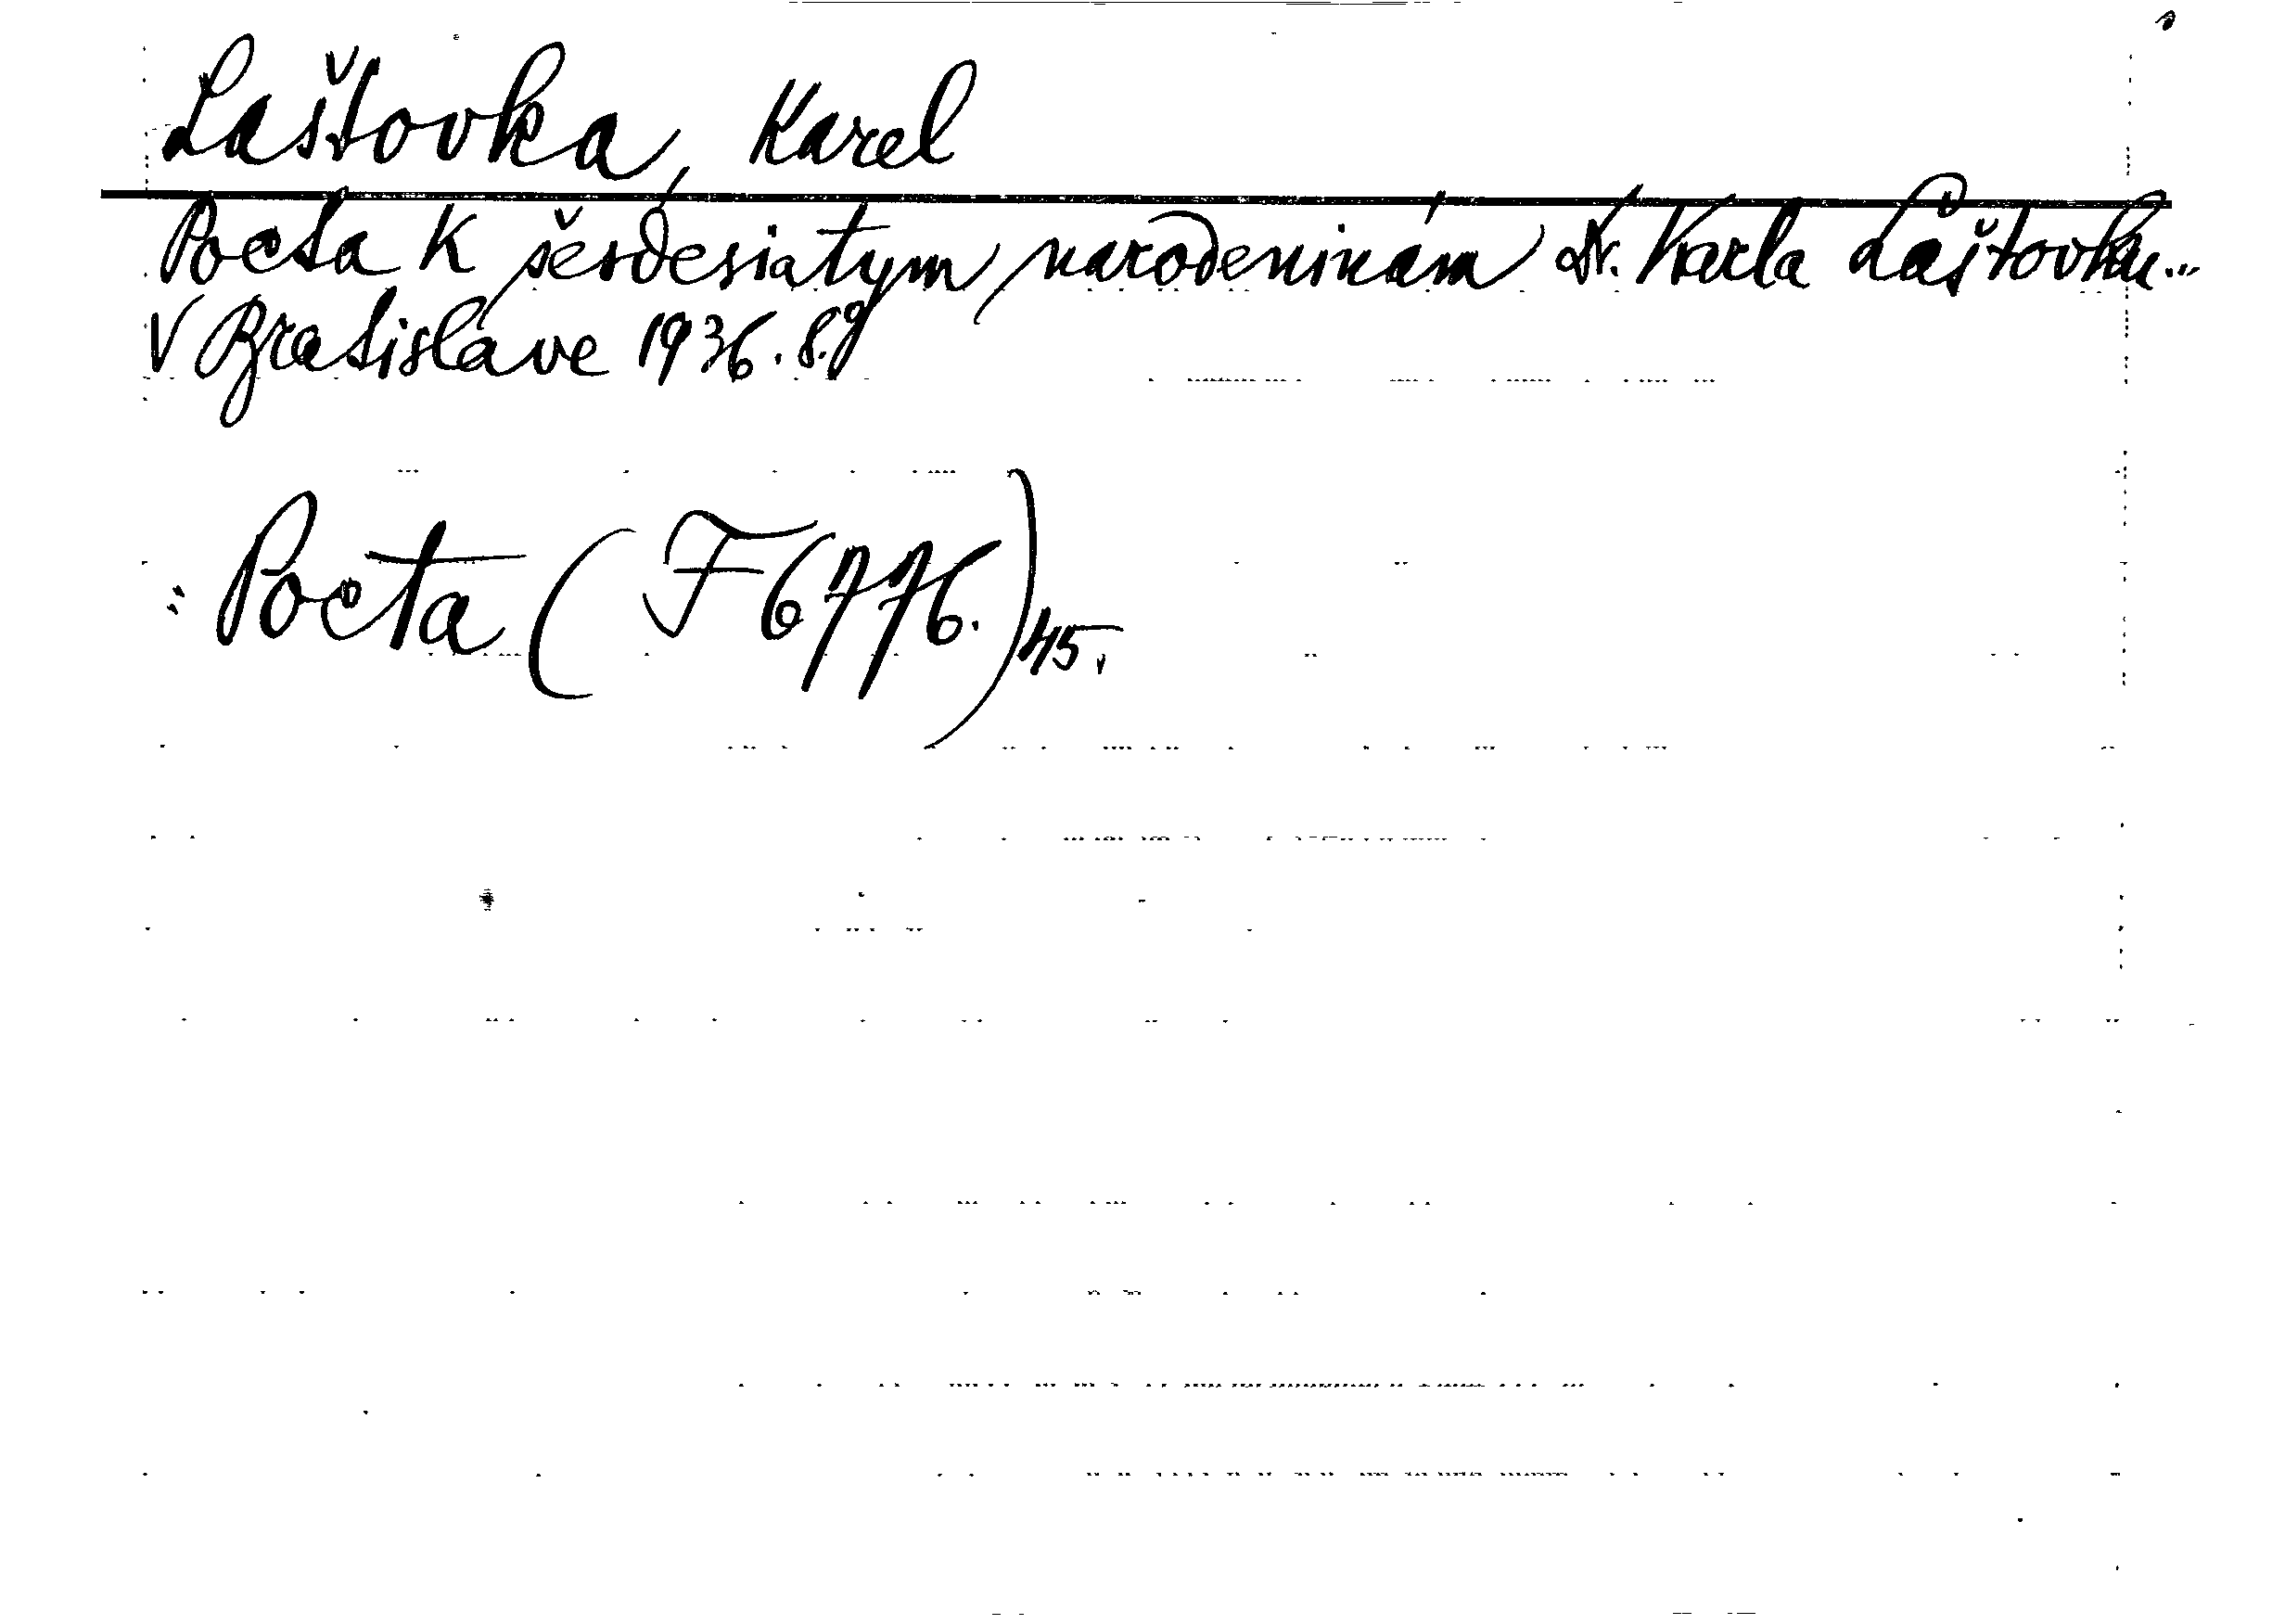 Laštovka, Karel
Pocta k šesťdesiatym narodeninám Dr. Karla Laštovku...
V Bratislave 1936. 8.º
: Pocta (F 6776.) 45.